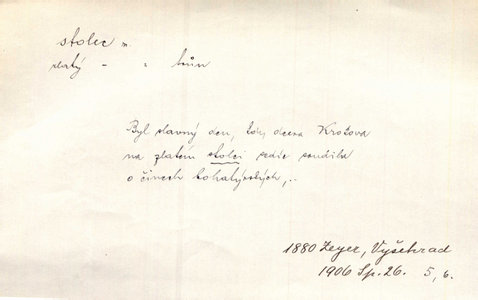 stolec m.
zlatý - = trůn
Byl slavný den, kdy dcera Krokova
na zlatém stolci sedíc soudila
o činech bohatýrských,..
1880 Zeyer, Vyšehrad
1906 Sp. 26. 5, 6.